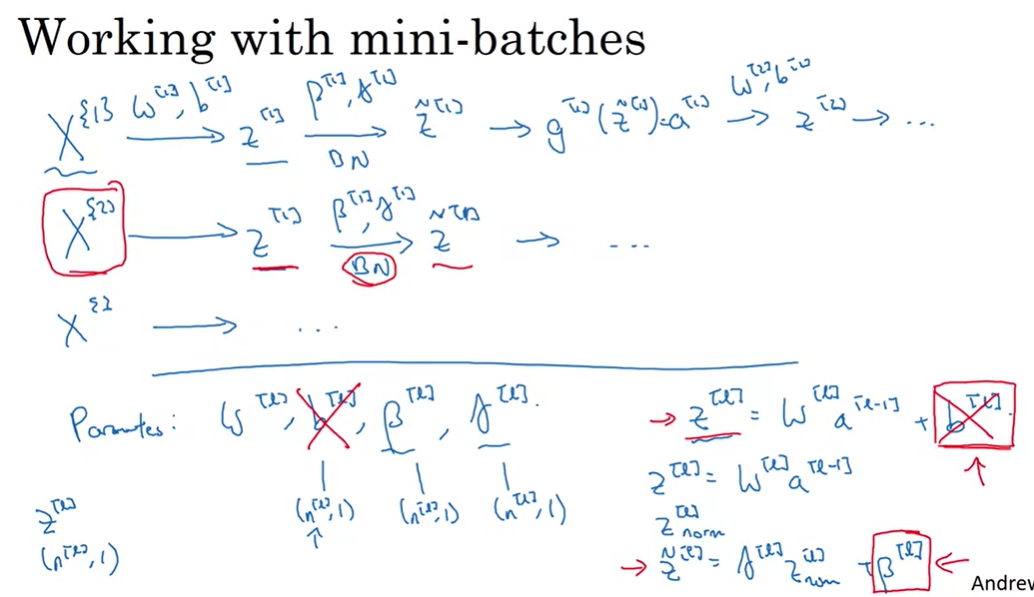 Working with mini-batches
X^{1} W^[1], b^[1] → z^[1] β^[1], γ^[1] → BN z̃^[1] → g^[1](z̃^[1]) = a^[1] → W^[2], b^[2] z^[2] → ...
X^{2} → z^[1] β^[1], γ^[1] → BN z̃^[1] → ...
X^{ → ...
Parameters: W^[l], b^[l], β^[l], γ^[l].
(n^[l],1) (n^[l],1) (n^[l],1)
z^[l]
(n^[l],1)
→ z^[l] = W^[l] a^[l-1] + b^[l]
z^[l] = W^[l] a^[l-1]
z^[l] norm
→ z̃^[l] = γ^[l] z^[l] norm + β^[l] ←
Andrew